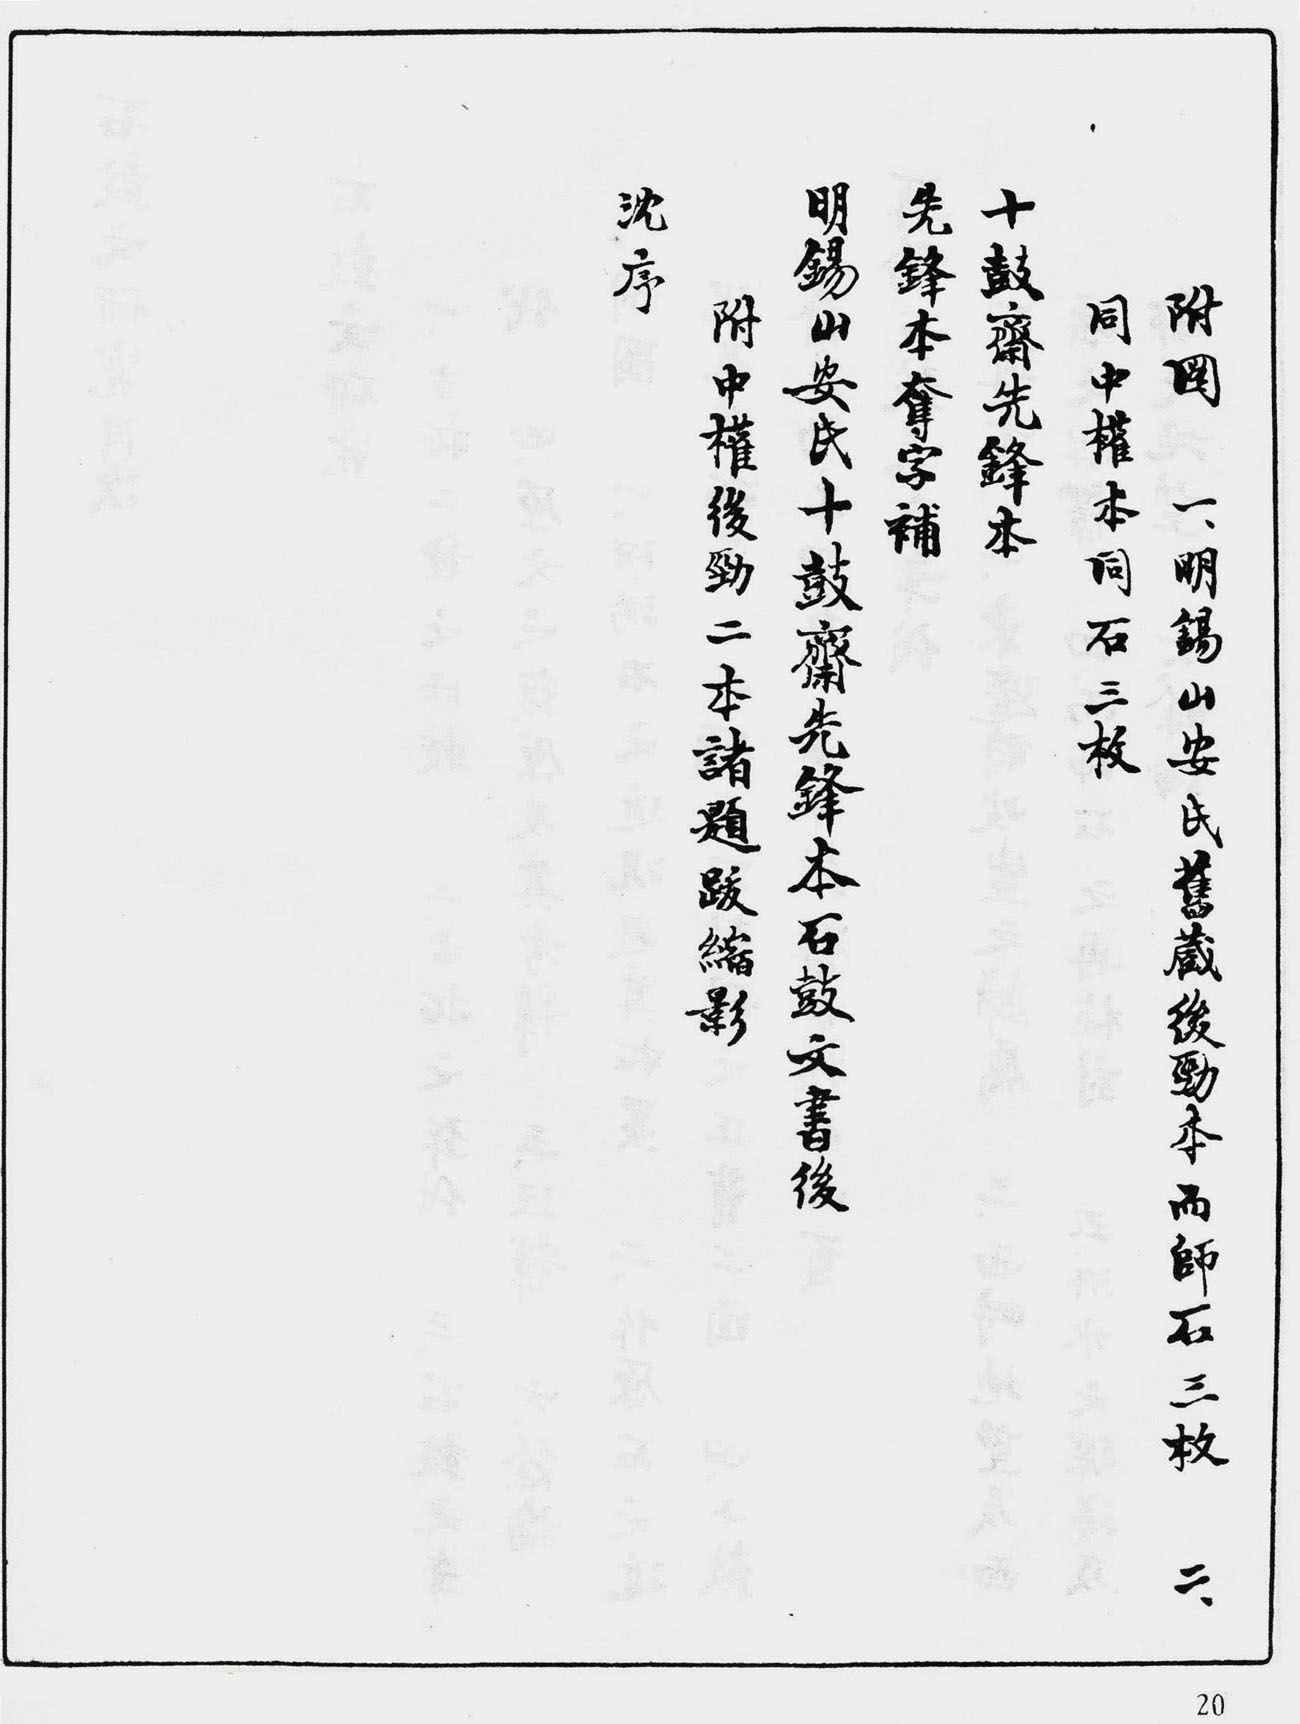 附図　一、明錫山安氏舊蔵後勁本而師石三枚　二、
同中權本同石三枚
十鼓齋先鋒本
先鋒本奪字補
明錫山安氏十鼓齋先鋒本石鼓文書後
附中權後勁二本諸題跋縮影
沈序
20